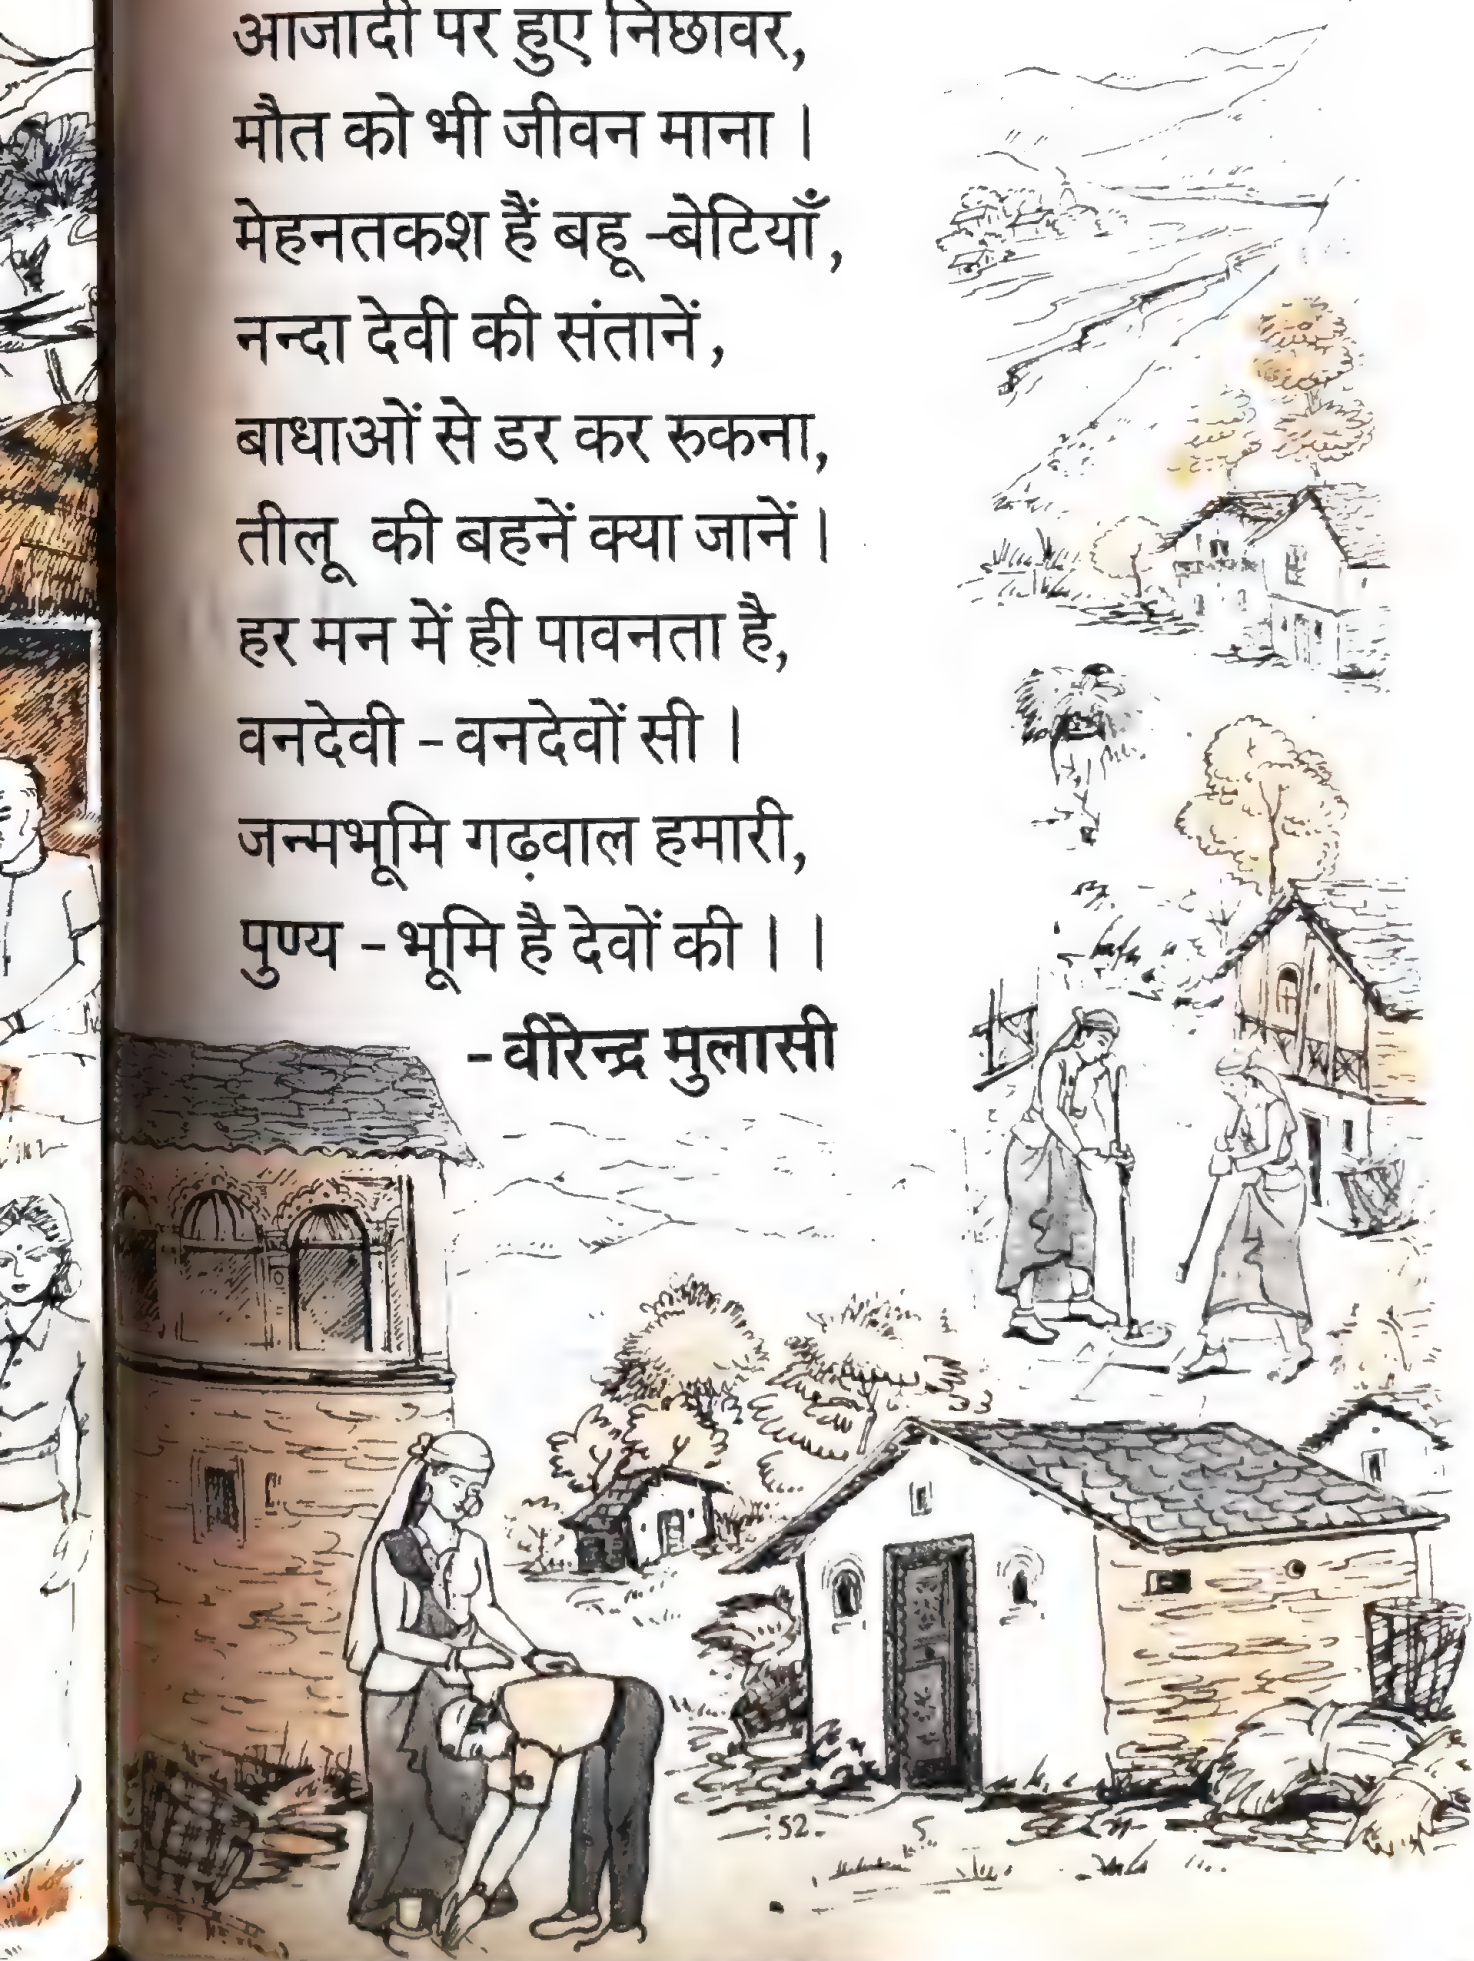 आजादी पर हुए निछावर,
मौत को भी जीवन माना ।
मेहनतकश हैं बहू -बेटियाँ,
नन्दा देवी की संतानें,
बाधाओं से डर कर रुकना,
तीलू की बहनें क्या जानें ।
हर मन में ही पावनता है,
वनदेवी - वनदेवों सी ।
जन्मभूमि गढ़वाल हमारी,
पुण्य - भूमि है देवों की । ।
- वीरेन्द्र मुलासी
:52.